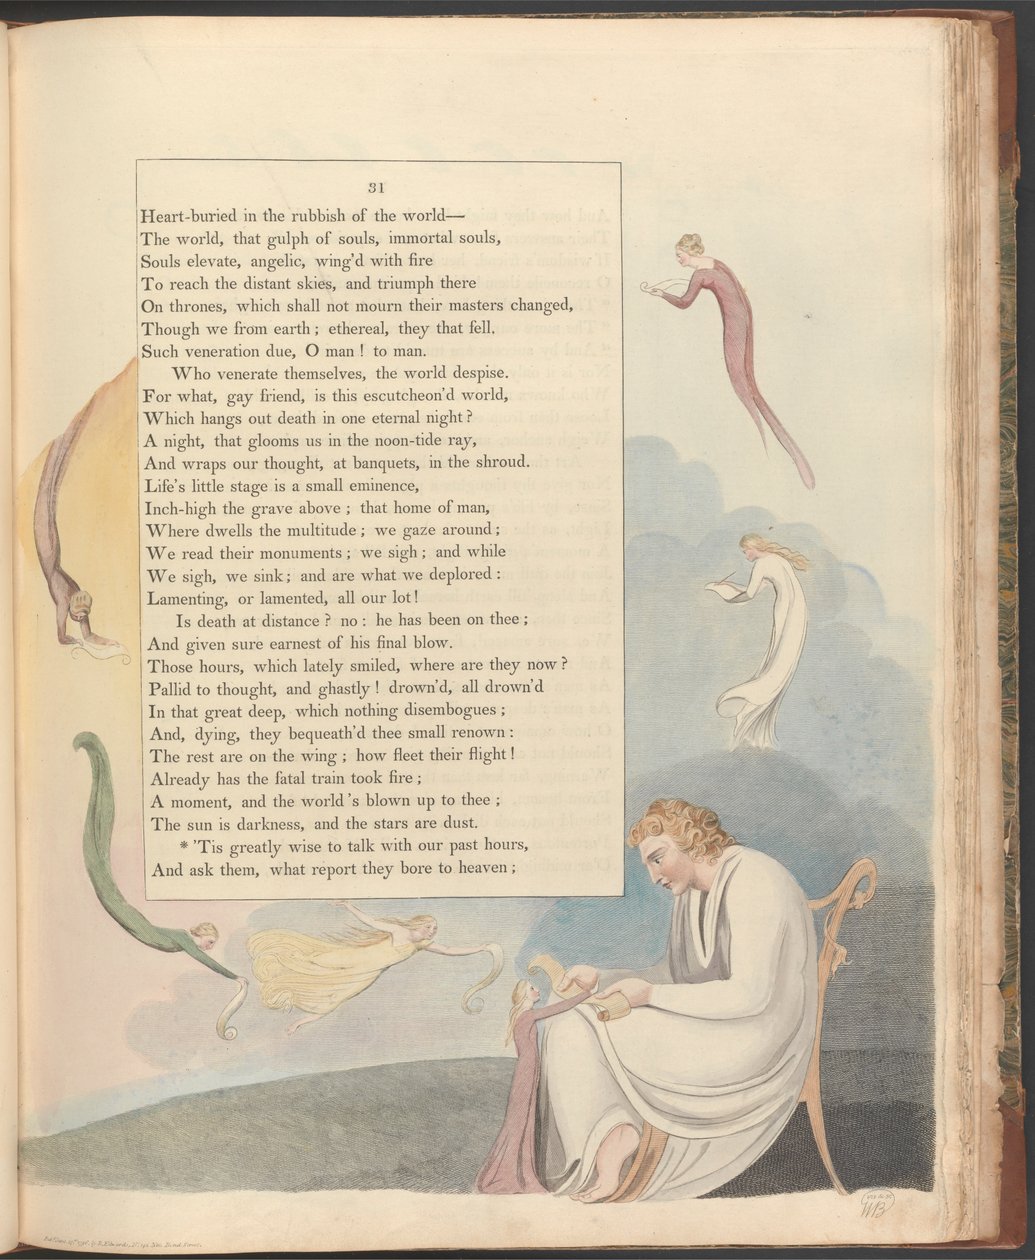 31
Heart-buried in the rubbish of the world—
The world, that gulph of souls, immortal souls,
Souls elevate, angelic, wing'd with fire
To reach the distant skies, and triumph there
On thrones, which shall not mourn their masters changed,
Though we from earth; ethereal, they that fell.
Such veneration due, O man! to man.
Who venerate themselves, the world despise.
For what, gay friend, is this escutcheon'd world,
Which hangs out death in one eternal night?
A night, that glooms us in the noon-tide ray,
And wraps our thought, at banquets, in the shroud.
Life's little stage is a small eminence,
Inch-high the grave above; that home of man,
Where dwells the multitude; we gaze around;
We read their monuments; we sigh; and while
We sigh, we sink; and are what we deplored:
Lamenting, or lamented, all our lot!
Is death at distance? no: he has been on thee;
And given sure earnest of his final blow.
Those hours, which lately smiled, where are they now?
Pallid to thought, and ghastly! drown'd, all drown'd
In that great deep, which nothing disembogues;
And, dying, they bequeath'd thee small renown:
The rest are on the wing; how fleet their flight!
Already has the fatal train took fire;
A moment, and the world's blown up to thee;
The sun is darkness, and the stars are dust.
* 'Tis greatly wise to talk with our past hours,
And ask them, what report they bore to heaven;
WB